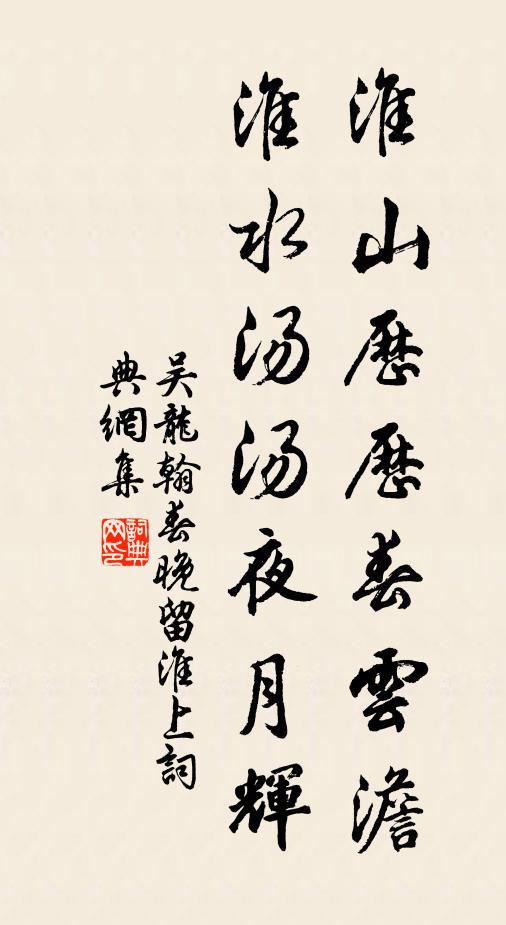 淮山歷歷春雲澹
淮水湯湯夜月輝
吴龍翰春晚留淮上詞
典網集
詞典
网印